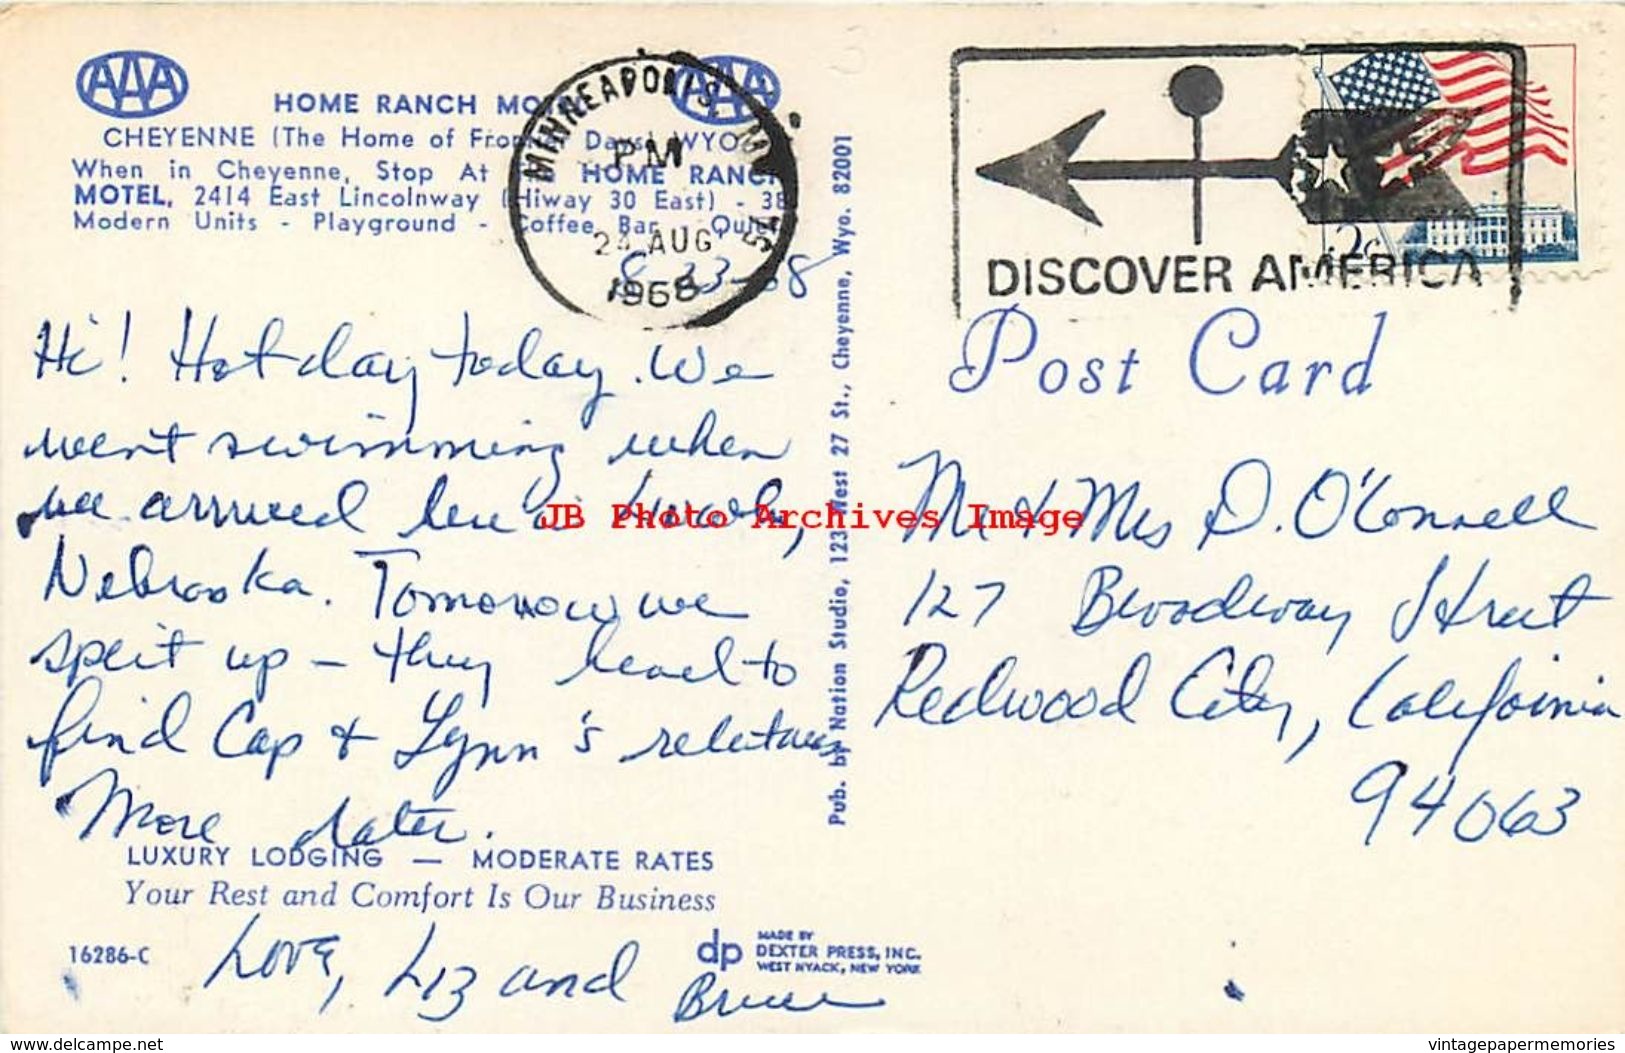 AAA
AAA
HOME RANCH MO
CHEYENNE (The Home of Fron Days) WYO
When in Cheyenne, Stop At HOME RANCH
MOTEL, 2414 East Lincolnway (Hiway 30 East) - 38
Modern Units - Playground - Coffee Bar - Quiet
MINNEAPOLIS, MN 554
PM
24 AUG
1968
8-23-68
DISCOVER AMERICA
Hi! Hot day today. We
went swimming when
we arrived here in Lincoln,
Nebraska. Tomorrow we
split up - they head to
find Cap & Lynn's relatives
More later.
LUXURY LODGING — MODERATE RATES
Your Rest and Comfort Is Our Business
16286-C
Love, Liz and Bruce
dp
MADE BY
DEXTER PRESS, INC.
WEST NYACK, NEW YORK
Pub. by Nation Studio, 123 West 27 St., Cheyenne, Wyo. 82001
Post Card
Mr & Mrs D. O'Connell
127 Broadway Street
Redwood City, California
94063
JB Photo Archives Image
www.delcampe.net
vintagepapermemories